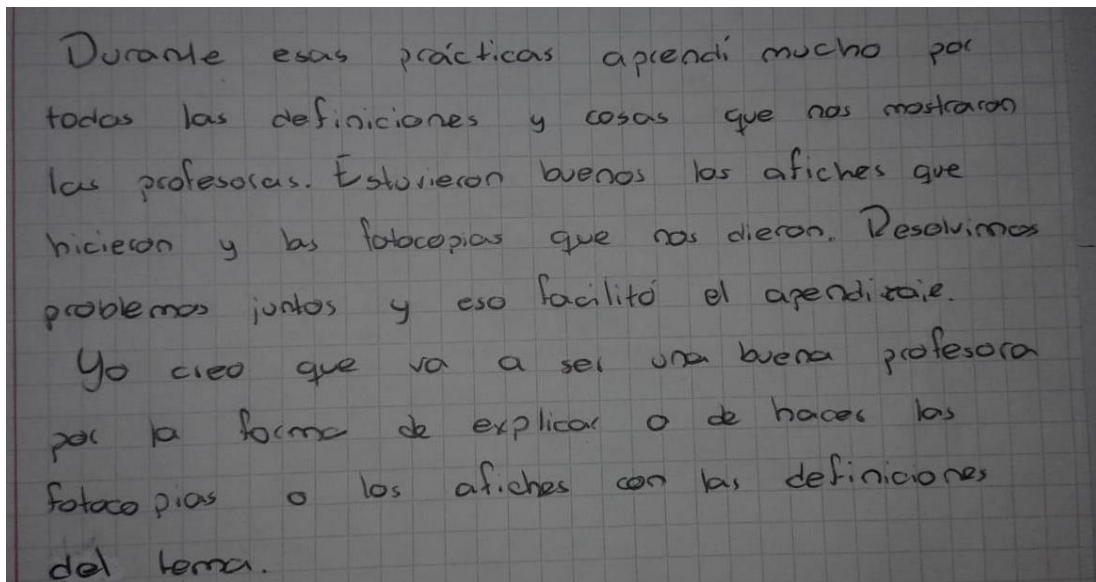 Durante esas prácticas aprendí mucho por
todas las definiciones y cosas que nos mostraron
las profesoras. Estuvieron buenos los afiches que
hicieron y las fotocopias que nos dieron. Resolvimos
problemas juntos y eso facilitó el apendizaje.
Yo creo que va a ser una buena profesora
por la forma de explicar o de hacer las
fotocopias o los afiches con las definiciones
del tema.